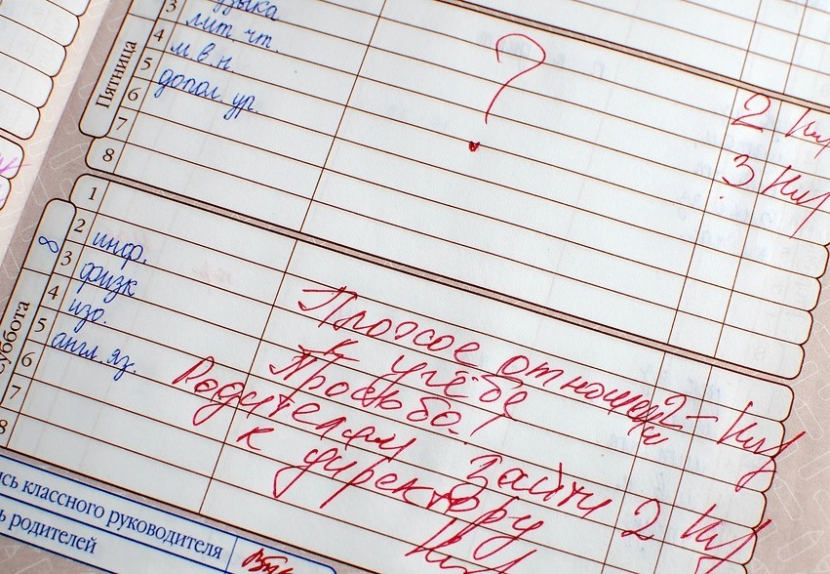 Пятница
3
4 лит чт.
5 м.в.н.
6 допол. ур.
7
8
?
2
3
суббота
1
2
3 инф.
4 физк
5 изо.
6 англ. яз.
7
8
Плохое отношение
к учёбе 2-
Просьба!
Родителям зайти 2
к директору
классного руководителя
родителей